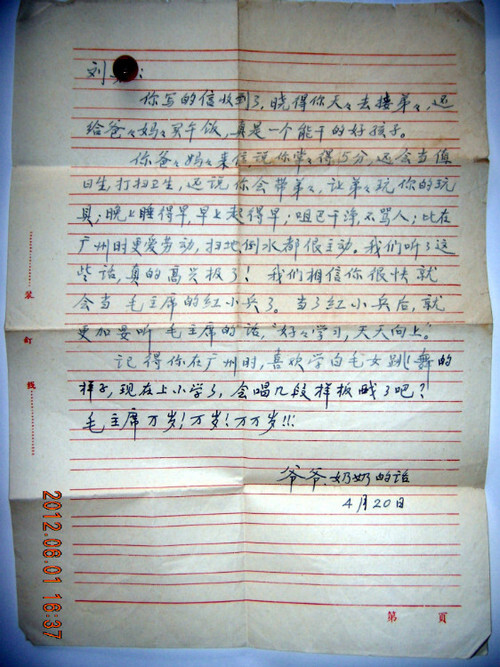 刘 :
你写的信收到了,晓得你天々去接弟々,还
给爸々妈々买午饭,真是一个能干的好孩子。
你爸々妈々来信说你常々得5分,还会当值
日生,打扫卫生,还说你会带弟々,让弟々玩你的玩
具;晚上睡得早,早上起得早;咀巴干净,不骂人;比在
广州时更爱劳动,扫地倒水都很主动。我们听了这
些话,真的高兴极了!我们相信你很快就
会当毛主席的红小兵了。当了红小兵后,就
更加要听毛主席的话,“好々学习,天天向上。”
记得你在广州时,喜欢学白毛女跳舞的
样子,现在上小学了,会唱几段样板戏了吧?
毛主席万岁!万岁!万万岁!!!
爷爷、奶奶的话
4月20日
装
订
线
第 頁
2012.08.01 16:37